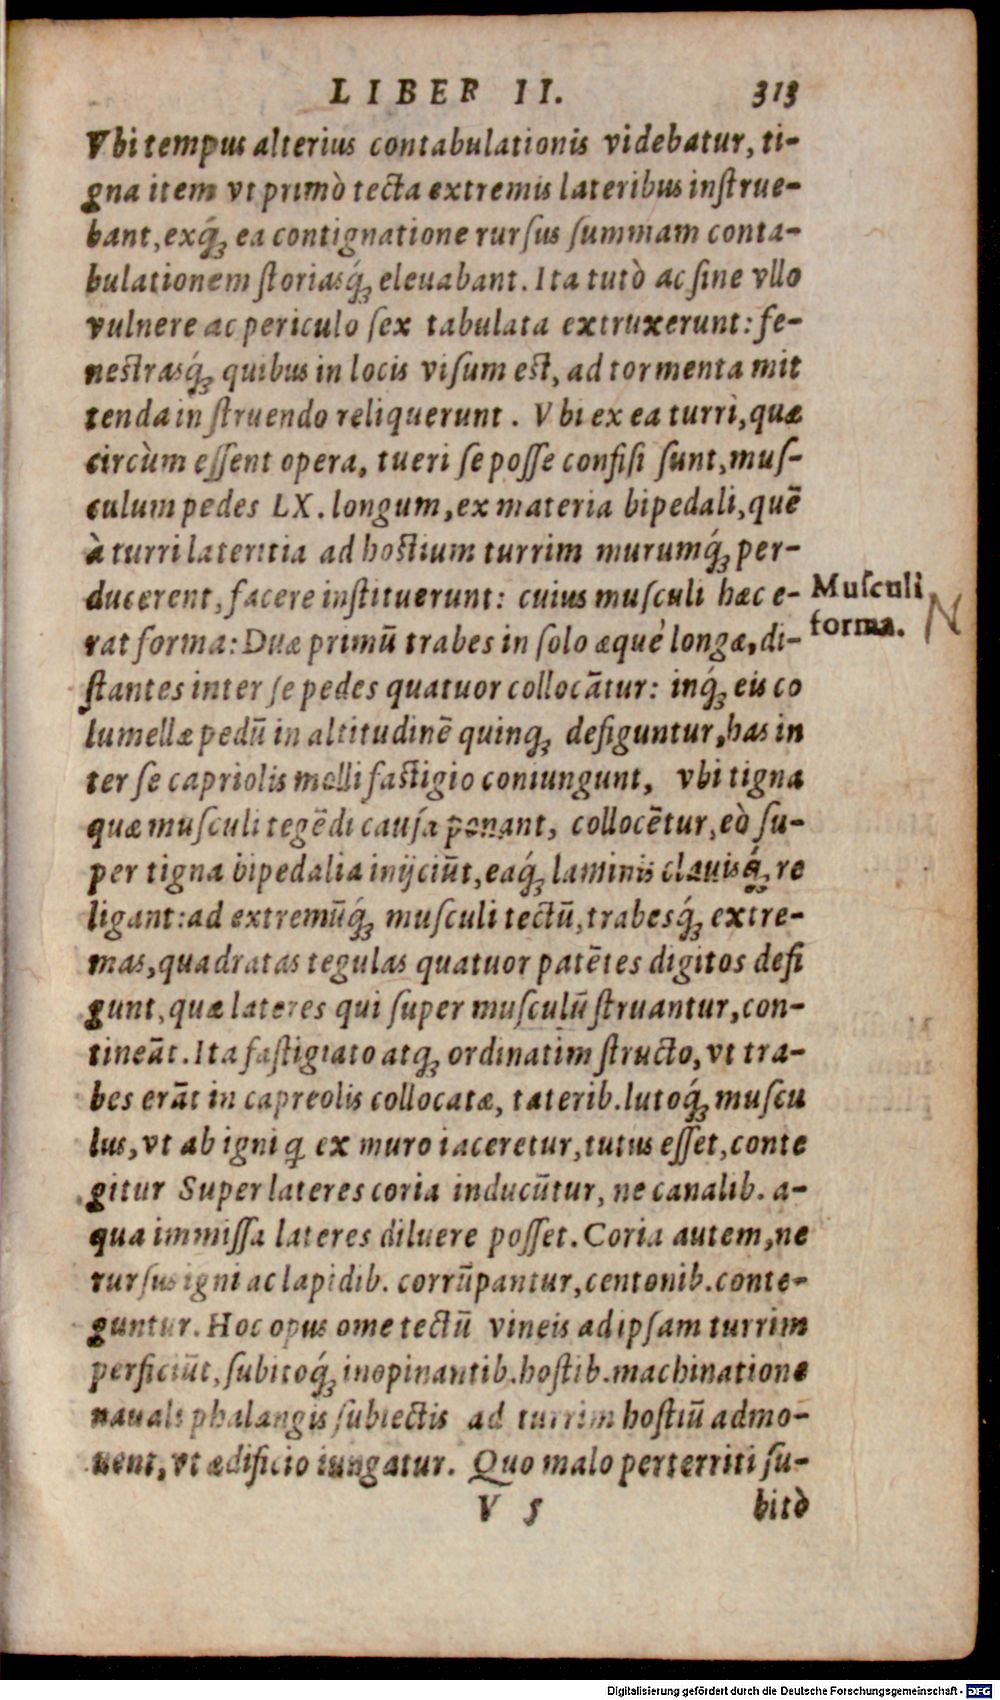 LIBER II. 313
Vbi tempus alterius contabulationis videbatur, ti-
gna item vt primò tecta extremis lateribus inſtrue-
bant, exq́ꝫ ea contignatione rurſus ſummam conta-
bulationem ſtoriasq́ꝫ eleuabant. Ita tutò ac ſine vllo
vulnere ac periculo ſex tabulata extruxerunt: fe-
nestrasq́ꝫ quibus in locis viſum eſt, ad tormenta mit
tenda in ſtruendo reliquerunt. Vbi ex ea turri, quæ
circùm eſſent opera, tueri ſe poſſe confiſi ſunt, muſ-
culum pedes LX. longum, ex materia bipedali, quē
à turri lateritia ad hoſtium turrim murumq́ꝫ per-
ducerent, facere inſtituerunt: cuius muſculi hæc e-
rat forma: Duæ primū trabes in ſolo æquè longæ, di-
ſtantes inter ſe pedes quatuor collocātur: inq́ꝫ eis co
lumellæ pedū in altitudinē quinqꝫ defiguntur, has in
ter ſe capriolis molli faſtigio coniungunt, vbi tigna
quæ muſculi tegēdi cauſa ponant, collocētur, eò ſu-
per tigna bipedalia inijciūt, eaq́ꝫ laminis clauisq́ꝫ re
ligant: ad extremūq́ꝫ muſculi tectū, trabesq́ꝫ extre-
mas, quadratas tegulas quatuor patētes digitos defi
gunt, quæ lateres qui ſuper muſculū ſtruantur, con-
tineāt. Ita faſtigiato atqꝫ ordinatim ſtructo, vt tra-
bes erāt in capreolis collocatæ, taterib. lutoq́ꝫ muſcu
lus, vt ab igni q̨ ex muro iaceretur, tutus eſſet, conte
gitur Super lateres coria inducūtur, ne canalib. a-
qua immiſſa lateres diluere poſſet. Coria autem, ne
rurſus igni ac lapidib. corrūpantur, centonib. conte-
guntur. Hoc opus ome tectū vineis ad ipſam turrim
perficiūt, ſubitoq́ꝫ inopinantib. hoſtib. machinatione
nauali phalangis ſubiectis ad turrim hoſtiū admo-
uent, vt ædificio iungatur. Quo malo perterriti ſu-
V 5 bitò
Muſculi
forma.
N
Digitalisierung gefördert durch die Deutsche Forschungsgemeinschaft - DFG